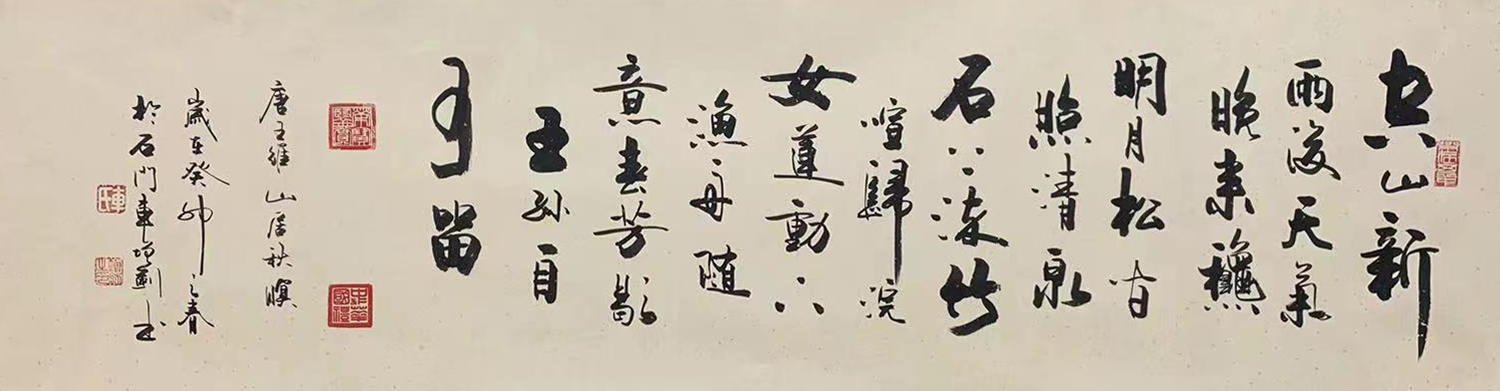 空山新
雨後天氣
晚来龝
明月松间
照清泉
石上流竹
喧歸浣
女蓮動下
漁舟随
意春芳歇
王孫自
可留
中華國禮
唐王維山居秋暝
歲在癸卯之春
於石門車增书
車氏